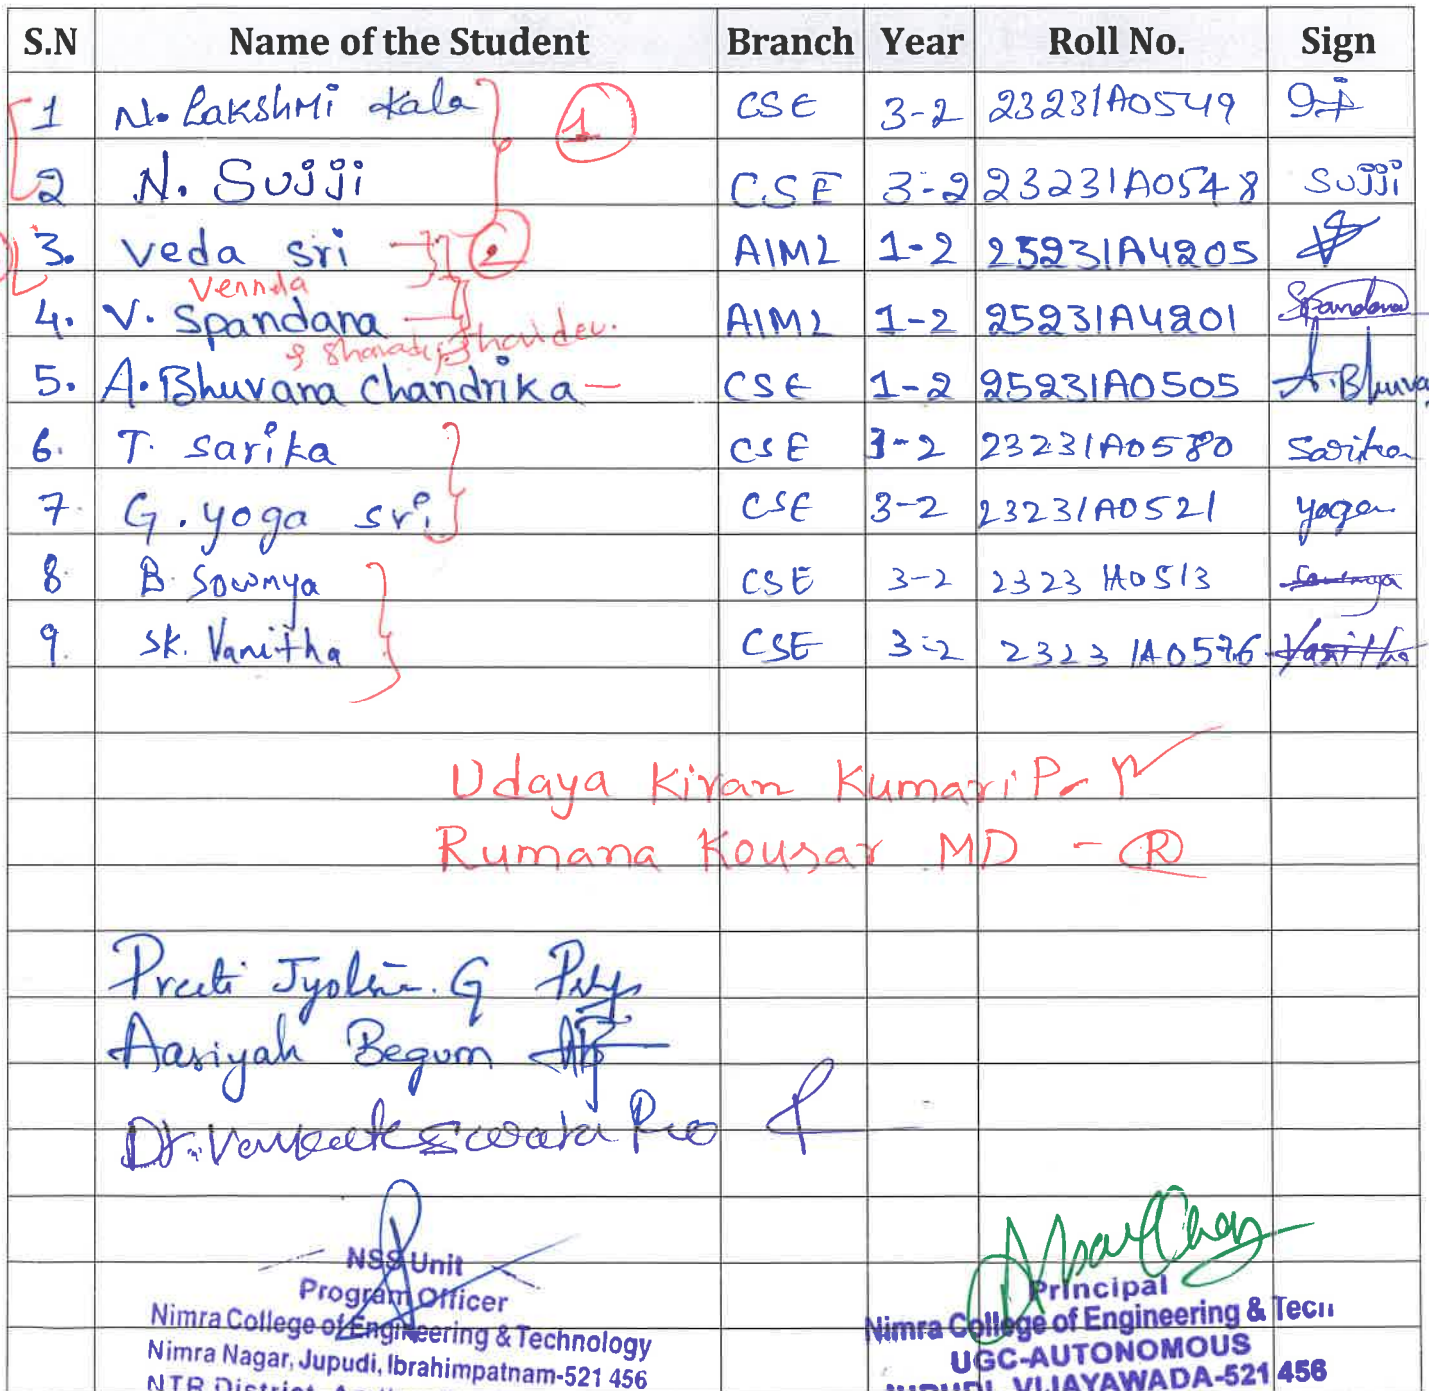 S.N Name of the Student Branch Year Roll No. Sign
1 N. Lakshmi kala CSE 3-2 23231A0549
1
2 N. Sujji CSE 3-2 23231A0548 Sujji
3. Veda sri 2 AIML 1-2 25231A4205
Vennela
4. V. Spandana AIML 1-2 25231A4201 Spandana
5. A. Bhuvana Chandrika CSE 1-2 25231A0505 A. Bhuva
6. T. Sarika CSE 3-2 23231A0580 Sarika
7. G. yoga sri CSE 3-2 23231A0521 yoga
8 B. Sowmya CSE 3-2 23231A0513 Sowmya
9. SK. Vanitha CSE 3-2 23231A0576 Vanitha
Udaya Kiran Kumari P.
Rumana Kousar MD - R
Preeti Jyolsna. G
Aasiyah Begum
Dr. Venkateswara Rao
NSS Unit
Program Officer
Nimra College of Engineering & Technology
Nimra Nagar, Jupudi, Ibrahimpatnam-521 456
NTR District,
Principal
Nimra College of Engineering & Tech
UGC-AUTONOMOUS
JUPUDI, VIJAYAWADA-521 456